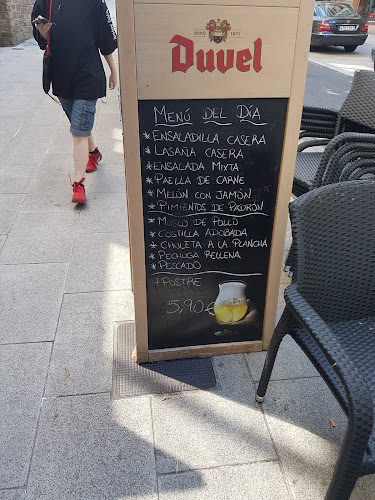 ANNO 1871
Duvel
MENÚ DEL DÍA
* ENSALADILLA CASERA
* LASAÑA CASERA
* ENSALADA MIXTA
* PAELLA DE CARNE
* MELÓN CON JAMÓN
* PIMIENTOS DE PADRÓN
* MUSLO DE POLLO
* COSTILLA ADOBADA
* CHULETA A LA PLANCHA
* PECHUGA RELLENA
* PESCADO
+ POSTRE
5,90€